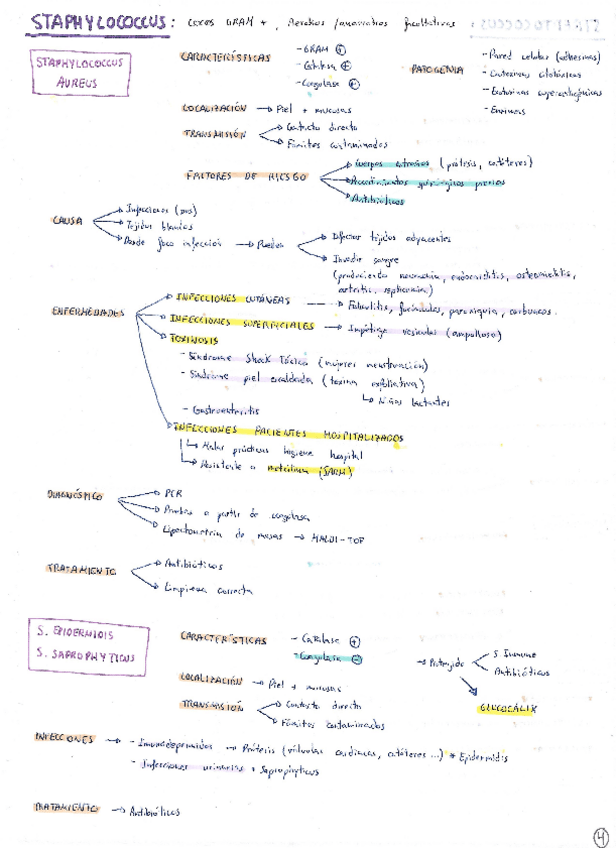 STAPHYLOCOCCUS: cocos GRAM +, Aerobios / anaerobios facultativos.
STAPHYLOCOCCUS AUREUS
CARACTERÍSTICAS
- GRAM (+)
- Catalasa (+)
- Coagulasa (+)
PATOGENIA
- Pared celular (adhesinas)
- Exotoxinas citotóxicas
- Exotoxinas superantigénicas
- Enzimas
LOCALIZACIÓN → Piel + mucosas
TRANSMISIÓN
→ Contacto directo
→ Fómites contaminados
FACTORES DE RIESGO
→ Cuerpos extraños (prótesis, catéteres)
→ Procedimientos quirúrgicos previos
→ Antibióticos
CAUSA
→ Infecciones (pus)
→ Tejidos blandos
→ Desde foco infección → Pueden
→ Infectar tejidos adyacentes
→ Invadir sangre
(produciendo neumonía, endocarditis, osteomielitis,
artritis, septicemia)
ENFERMEDADES
→ INFECCIONES CUTÁNEAS → Foliculitis, forúnculos, paroniquia, carbuncos.
→ INFECCIONES SUPERFICIALES → Impétigo vesicular (ampolloso)
→ TOXINOSIS
- Síndrome Shock Tóxico (mujeres menstruación)
- Síndrome piel escaldada (toxina exfoliativa)
↳ Niños lactantes
- Gastroenteritis
→ INFECCIONES PACIENTES HOSPITALIZADOS
↳ Malas prácticas higiene hospital
↳ Resistente a meticilina (SARM)
DIAGNÓSTICO
→ PCR
→ Pruebas a partir de coagulasa
→ Espectrometría de masas → MALDI-TOF
TRATAMIENTO
→ Antibióticos
→ Limpieza correcta
S. EPIDERMIDIS
S. SAPROPHYTICUS
CARACTERÍSTICAS
- Catalasa (+)
- Coagulasa (-)
→ Protegido
S. Inmune
Antibióticos
GLUCOCÁLIX
LOCALIZACIÓN → Piel + mucosas
TRANSMISIÓN
→ Contacto directo
→ Fómites contaminados
INFECCIONES → - Inmunodeprimidos → Prótesis (válvulas cardíacas, catéteres ...) * Epidermidis
- Infecciones urinarias * Saprophyticus
TRATAMIENTO → Antibióticos
4